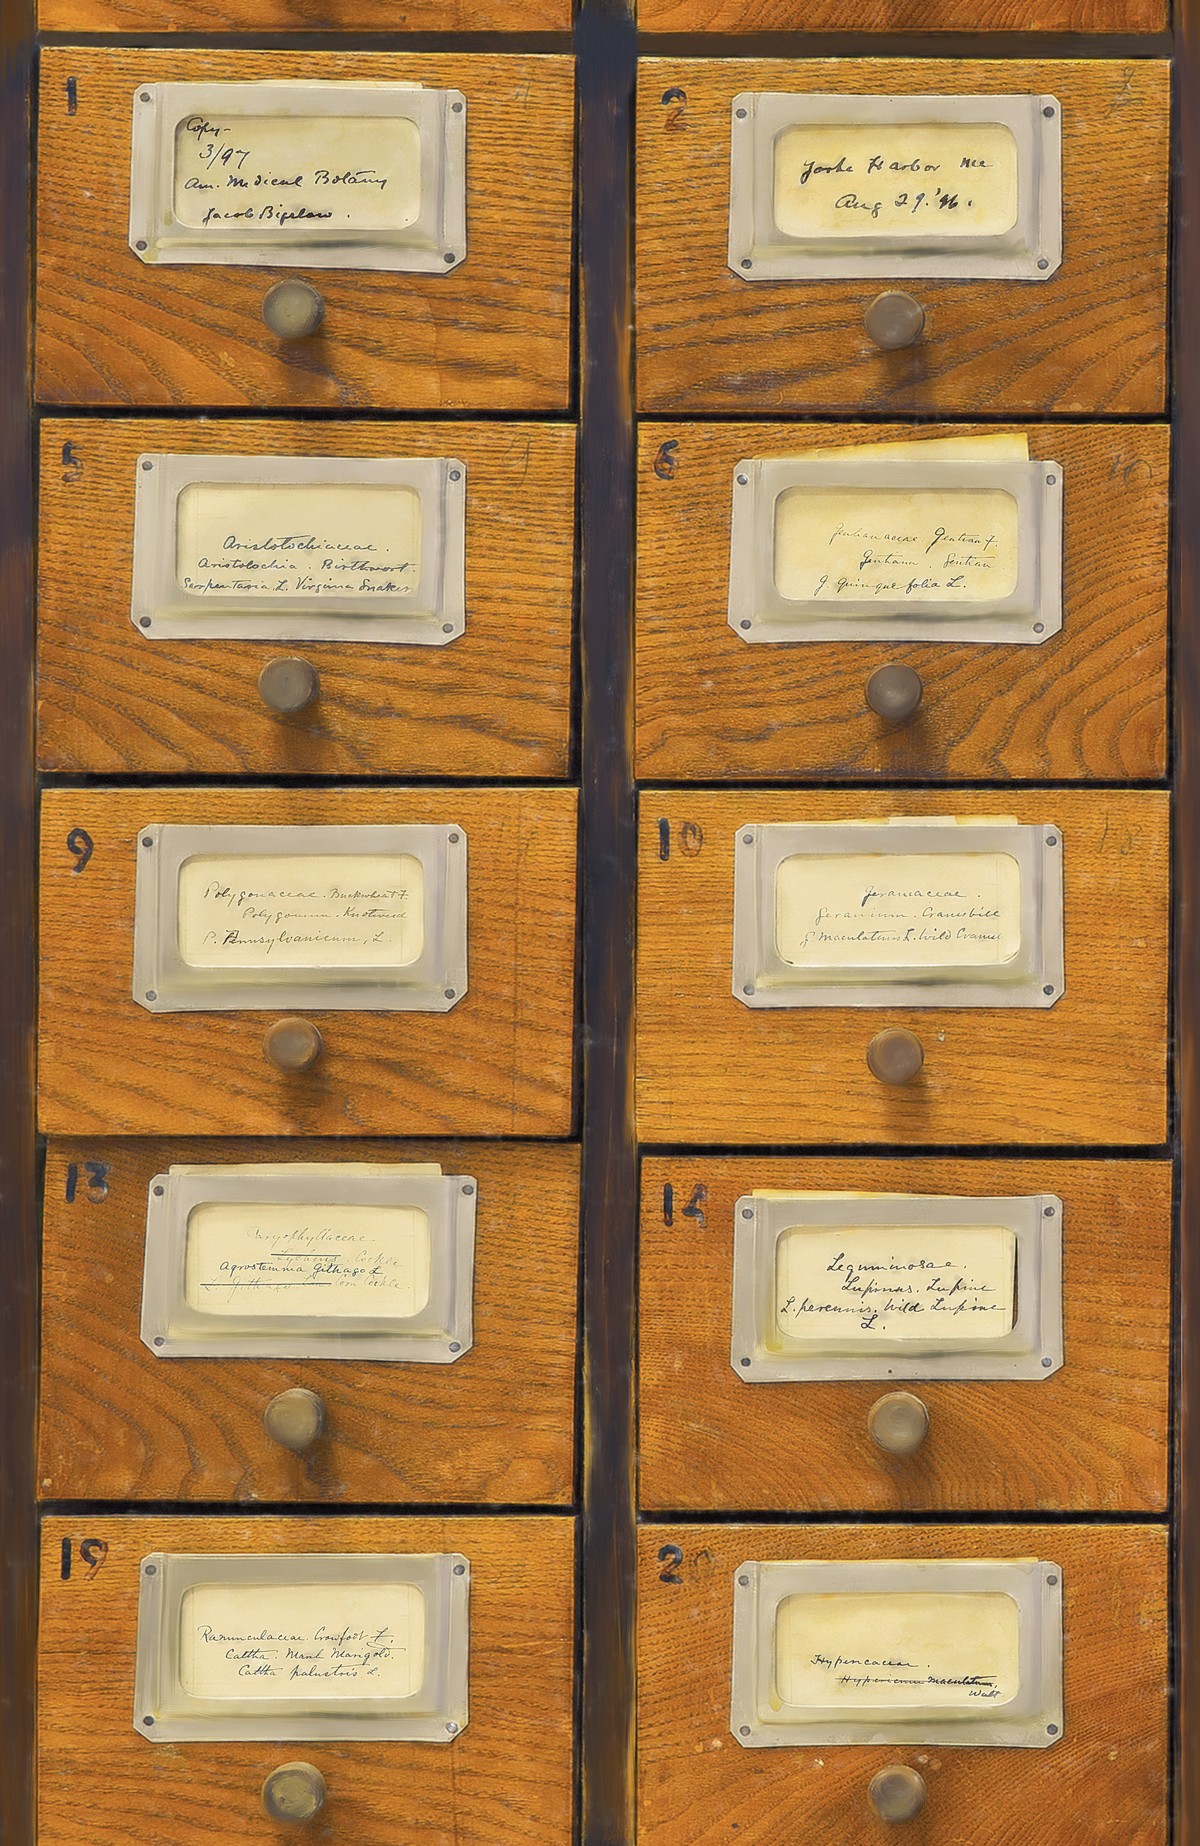 1
Copy-
3/97
Am. Medical Botany
Jacob Bigelow.
2
York Harbor Me
Aug 29. '96.
5
Aristolochiaceae.
Aristolochia. Birthwort.
Serpentaria. L. Virginia Snaker
6
Gentianaceae Gentian F.
Gentiana. Gentian
G. quinquefolia L.
9
Polygonaceae. Buckwheat F.
Polygonum. Knotweed
P. Pennsylvanicum, L.
10
Geraniaceae.
Geranium. Cranesbill
G maculatum L. Wild Cranes
13
Caryophyllaceae
Lychnis. Cockle
Agrostemma Githago L
L. Githago Lam Corn Cockle
14
Leguminosae.
Lupinus. Lupine
L. perennis. Wild Lupine
L.
19
Ranunculaceae. Crowfoot F.
Caltha. Marsh Marigold.
Caltha palustris L.
20
Hypericaceae.
Hypericum maculatum,
Walt